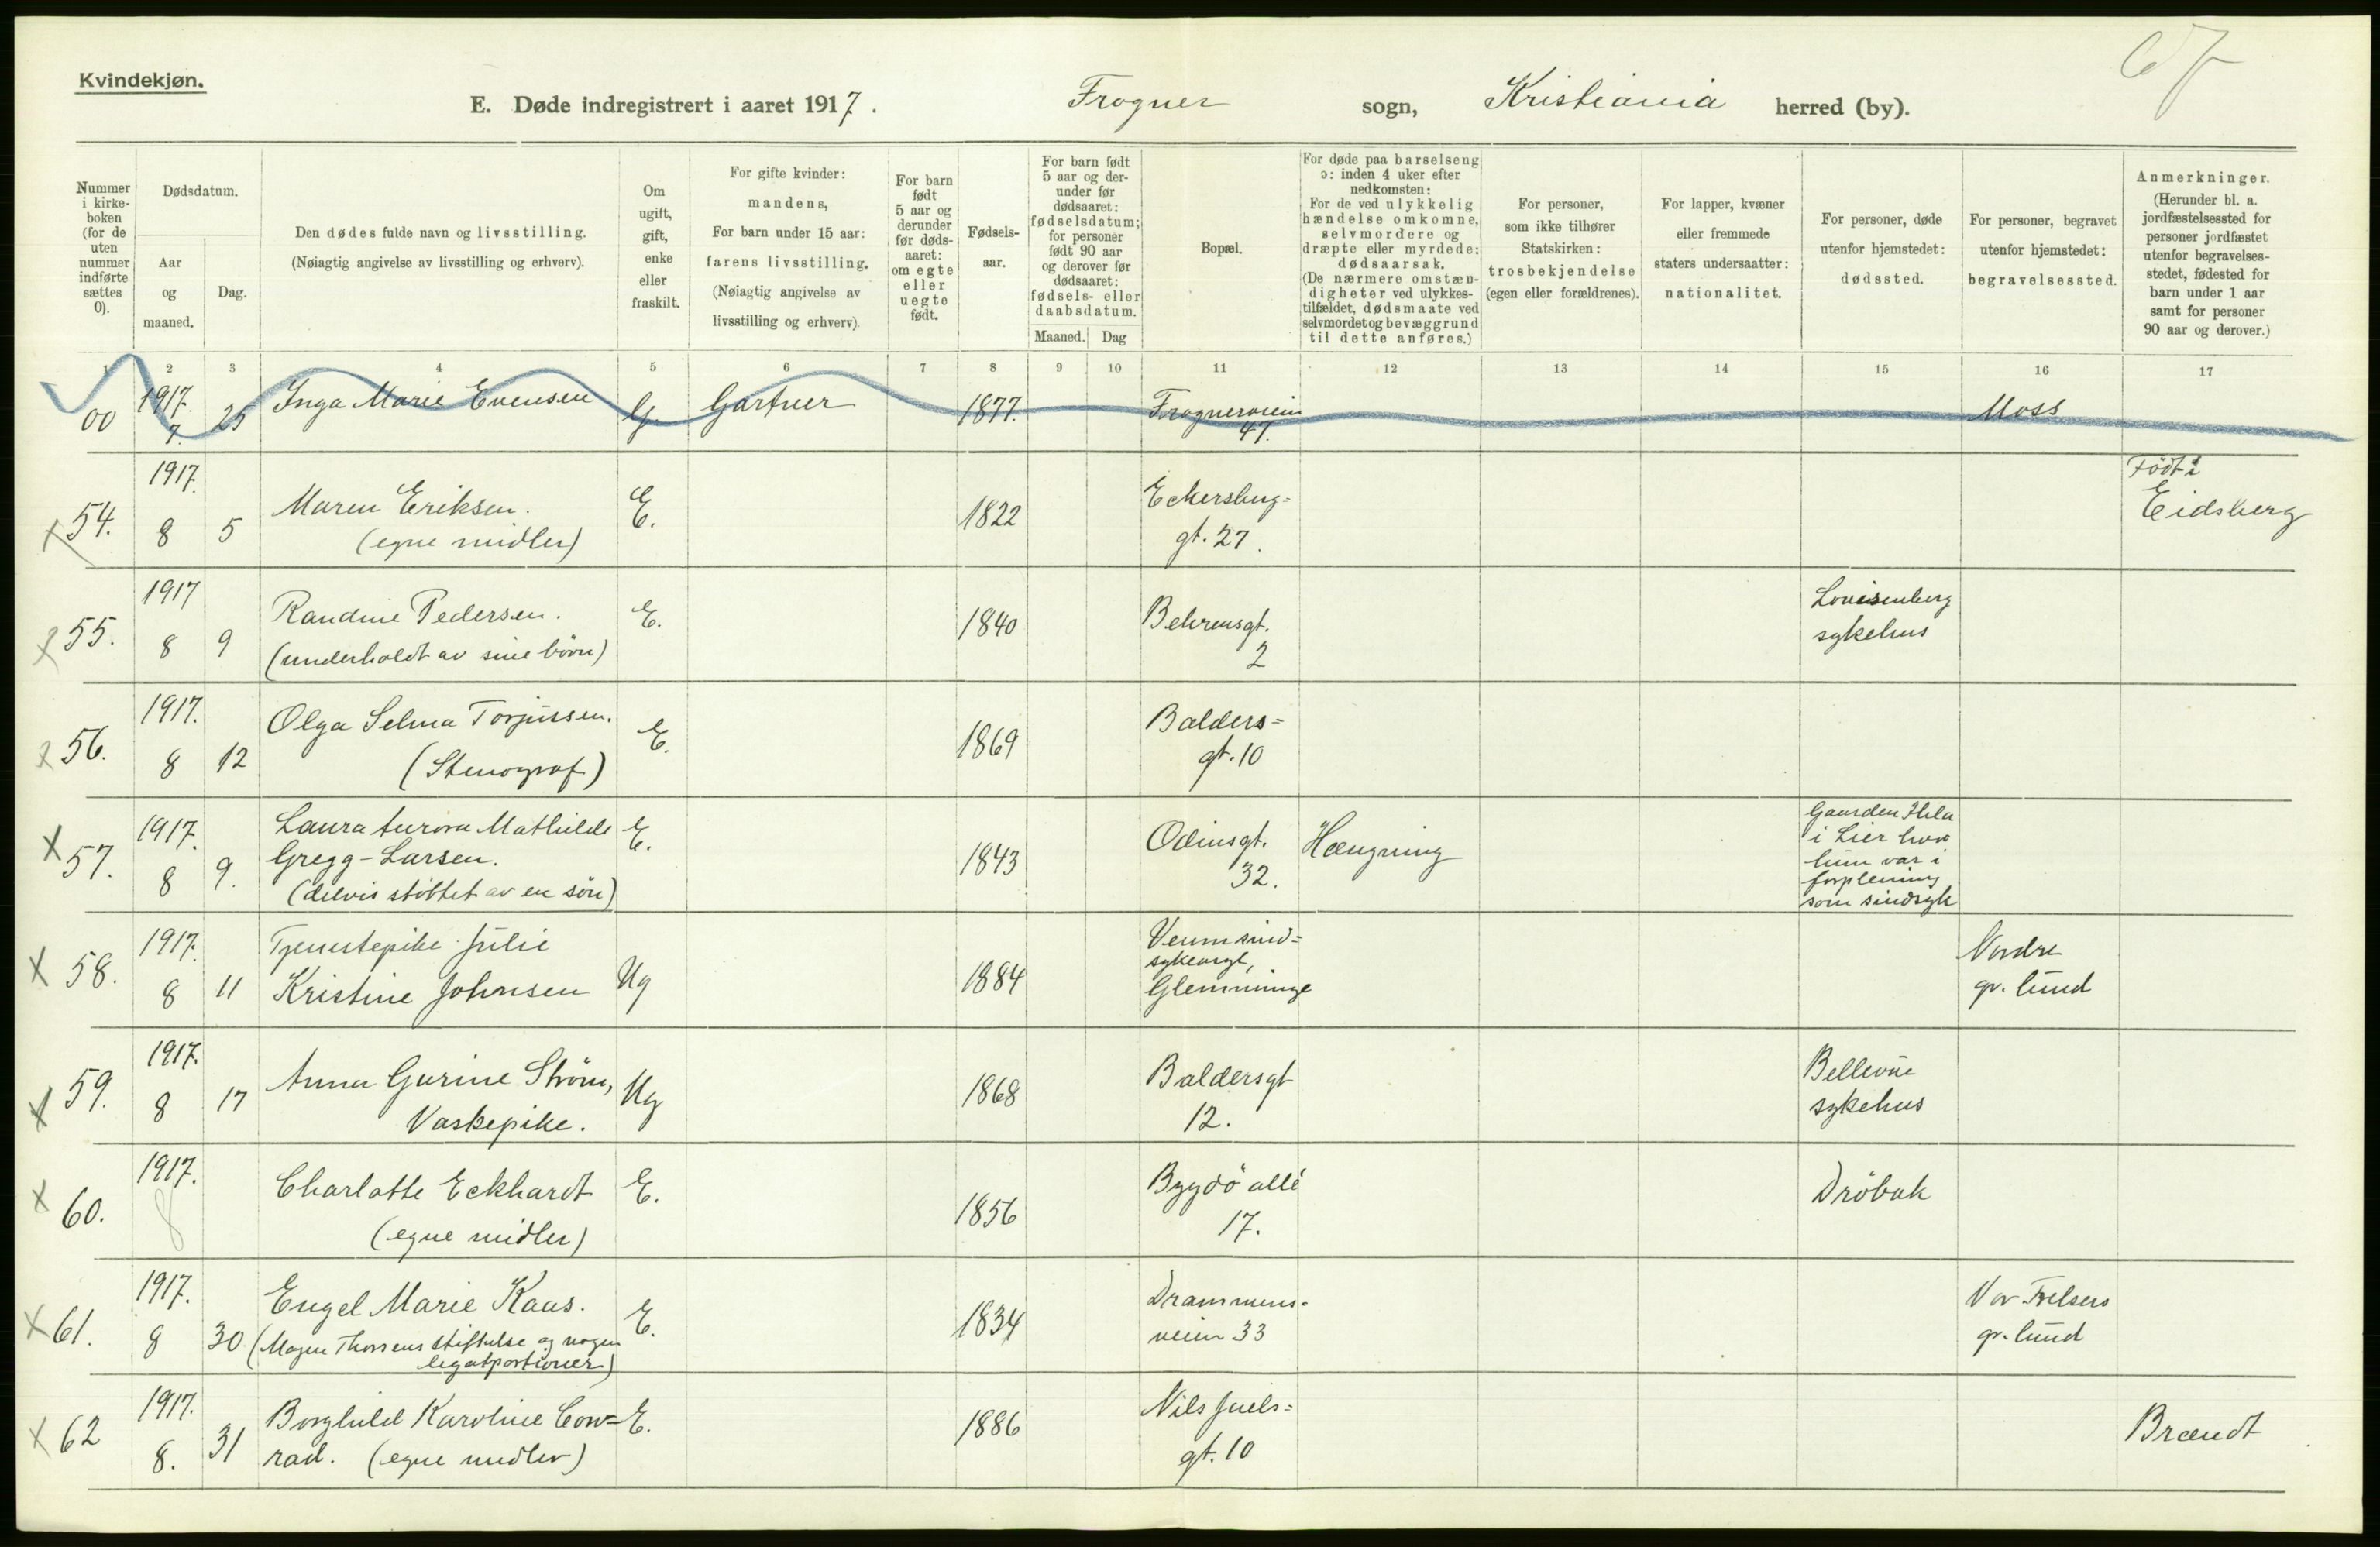 Kvindekjøn.
67
E. Døde indregistrert i aaret 1917. Frogner sogn, Kristiania herred (by).
Nummer i kirke-boken (for de uten nummer indførte sættes 0).
Dødsdatum.
Aar og maaned.
Dag.
Den dødes fulde navn og livsstilling.
(Nøiagtig angivelse av livsstilling og erhverv).
Om ugift, gift, enke eller fraskilt.
For gifte kvinder: mandens,
For barn under 15 aar: farens livsstilling.
(Nøiagtig angivelse av livsstilling og erhverv).
For barn født 5 aar og derunder før døds-aaret: om egte eller uegte født.
Fødsels-aar.
For barn født 5 aar og der-under før dødsaaret: fødselsdatum; for personer født 90 aar og derover før dødsaaret: fødsels- eller daabsdatum.
Maaned. Dag
Bopæl.
For døde paa barselseng ɔ: inden 4 uker efter nedkomsten:
For de ved ulykkelig hændelse omkomne, selvmordere og dræpte eller myrdede: dødsaarsak.
(De nærmere omstæn-digheter ved ulykkes-tilfældet, dødsmaate ved selvmordet og bevæggrund til dette anføres.)
For personer, som ikke tilhører Statskirken: trosbekjendelse (egen eller forældrenes).
For lapper, kvæner eller fremmede staters undersaatter: nationalitet.
For personer, døde utenfor hjemstedet: dødssted.
For personer, begravet utenfor hjemstedet: begravelsessted.
Anmerkninger.
(Herunder bl. a. jordfæstelsessted for personer jordfæstet utenfor begravelses-stedet, fødested for barn under 1 aar samt for personer 90 aar og derover.)
1 2 3 4 5 6 7 8 9 10 11 12 13 14 15 16 17
00 1917. 7. 25 Inga Marie Evensen G Gartner 1877. Frognerveien 47. Moss
x 54. 1917. 8 5 Maren Eriksen. (egne midler) E. 1822 Eckersberg=gt. 27. Født i Eidsberg
x 55. 1917 8 9 Randine Pedersen. (underholdt av sine børn) E. 1840 Behrensgt. 2 Lovisenberg sykehus
x 56. 1917. 8 12 Olga Selma Torjussen. (Stenograf) E. 1869 Balders=gt. 10
x 57. 1917. 8 9. Laura Aurora Mathilde Gregg-Larsen. (delvis støttet av en søn) E. 1843 Odinsgt. 32. Hængning Gaarden i Lier hvor hun var i forpleining som sindsyk
x 58. 1917. 8 11 Tjenestepike Julie Kristine Johnsen Ug 1884 Veum sind=sykeasyl, Glemminge Nordre gr. lund
x 59. 1917. 8 17 Anna Gurine Strøm, Vaskepike. Ug 1868 Baldersgt 12. Bellevue sykehus
x 60. 1917. 8 Charlotte Eckhardt (egne midler) E. 1856 Bygdö allé 17. Dröbak
x 61. 1917. 8 30 Engel Marie Kaas. (Mogen Thorsens stiftelse og nogen legatportioner) E. 1834 Drammens=veien 33 Vor Frelsers gr. lund
x 62 1917. 8. 31 Borghild Karoline Con=rad. (egne midler) E. 1886 Nils Juels=gt. 10 Brændt